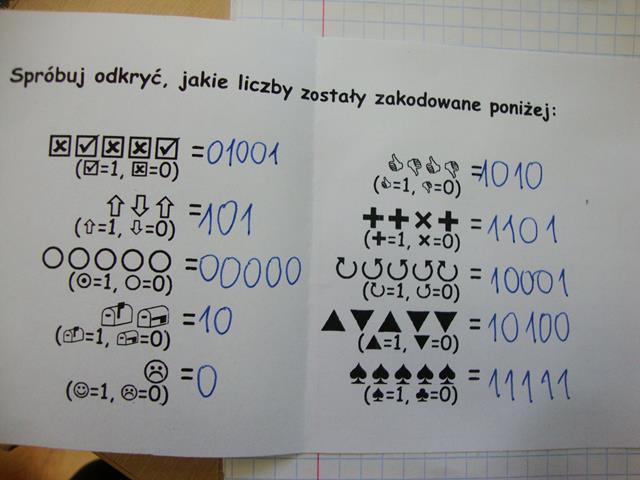 Spróbuj odkryć, jakie liczby zostały zakodowane poniżej:
☒☑☒☒☑ =01001
(☑=1, ☒=0)
⇧⇩⇧ =101
(⇧=1, ⇩=0)
○○○○○ =00000
(☉=1, ○=0)
📬📪 =10
(📬=1, 📪=0)
☹ =0
(☺=1, ☹=0)
👍👎👍👎 =1010
(👍=1, 👎=0)
✚✚✖✚ =1101
(✚=1, ✖=0)
↻↺↺↺↻ =10001
(↻=1, ↺=0)
▲▼▲▼▼ =10100
(▲=1, ▼=0)
♠♠♠♠♠ =11111
(♠=1, ♣=0)